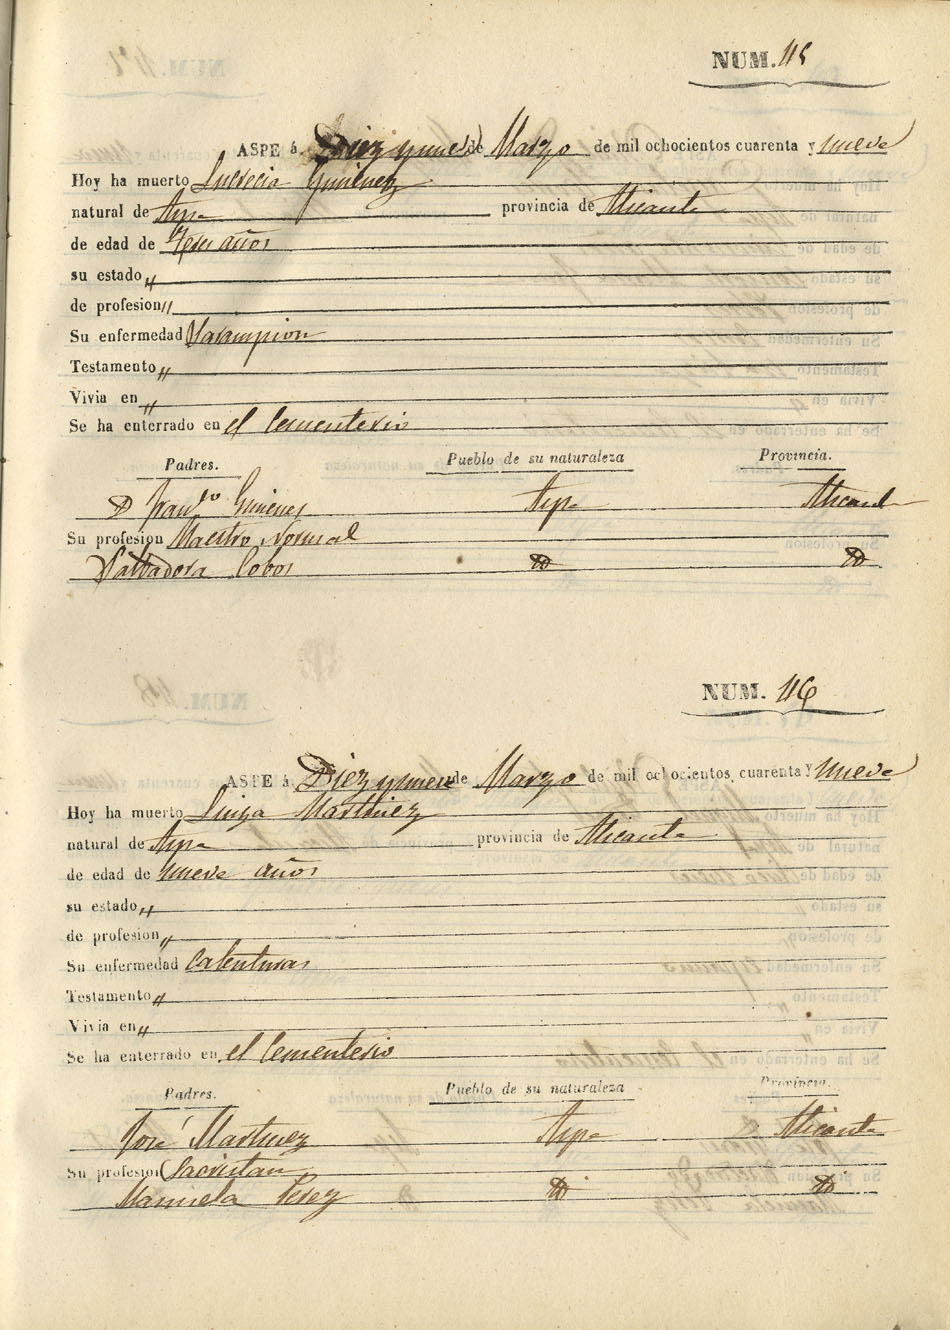 NUM. 115
ASPE á Diez y nueve de Marzo de mil ochocientos cuarenta y nueve
Hoy ha muerto Lucrecia Gimenez
natural de Aspe provincia de Alicante
de edad de años
su estado "
de profesion "
Su enfermedad Sarampion
Testamento "
Vivia en "
Se ha enterrado en el Cementerio
Padres. Pueblo de su naturaleza Provincia.
D Fran.co Gimenes Aspe Alicante
Su profesion Maestro Normal
Salbadora Cobos
NUM. 116
ASPE á Diez y nueve de Marzo de mil ochocientos cuarenta y nueve
Hoy ha muerto Luiza Martinez
natural de Aspe provincia de Alicante
de edad de nueve años
su estado "
de profesion "
Su enfermedad Calenturas
Testamento "
Vivia en "
Se ha enterrado en el Cementerio
Padres. Pueblo de su naturaleza Provincia.
José Martinez Aspe Alicante
Su profesion Sacristan
Manuela Perez